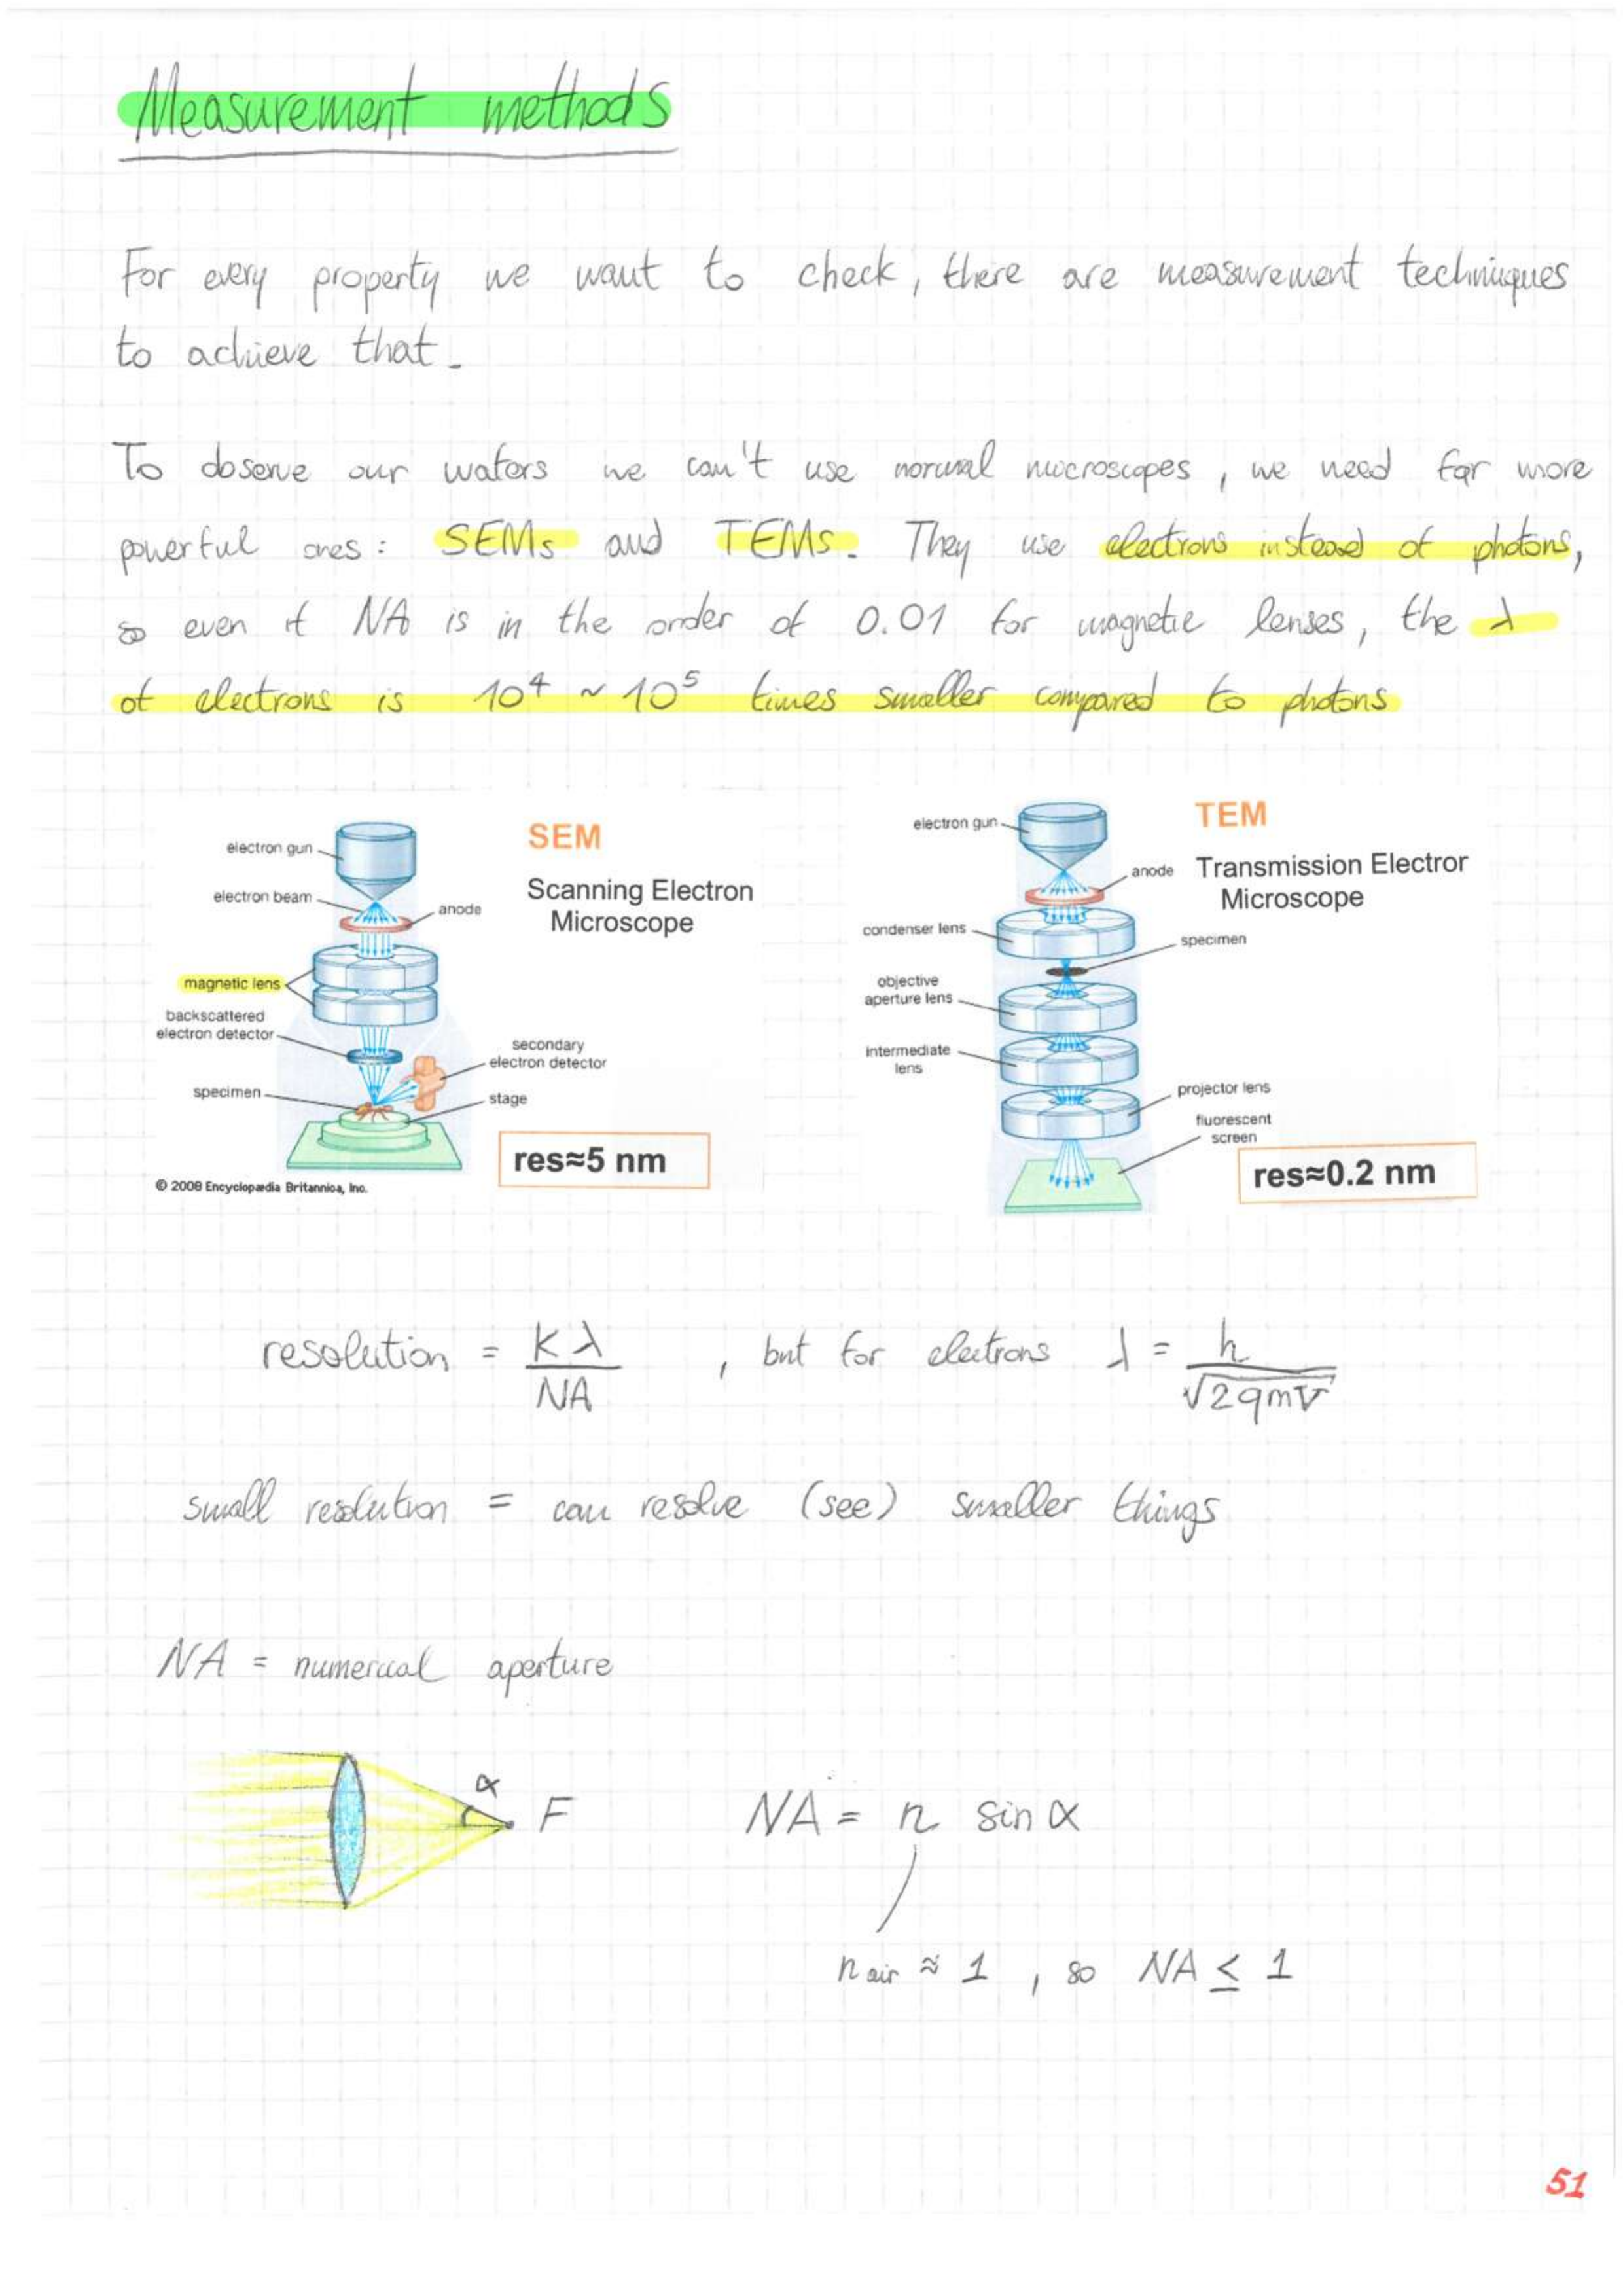 Measurement methods
For every property we want to check, there are measurement techniques
to achieve that.
To observe our wafers we can't use normal microscopes, we need far more
powerful ones: SEMs and TEMs. They use electrons instead of photons,
so even if NA is in the order of 0.01 for magnetic lenses, the λ
of electrons is 10⁴ ~ 10⁵ times smaller compared to photons
SEM
Scanning Electron
Microscope
electron gun
electron beam
anode
magnetic lens
backscattered
electron detector
secondary
electron detector
specimen
stage
res≈5 nm
© 2008 Encyclopædia Britannica, Inc.
TEM
Transmission Electror
Microscope
electron gun
anode
condenser lens
specimen
objective
aperture lens
intermediate
lens
projector lens
fluorescent
screen
res≈0.2 nm
resolution = Kλ / NA , but for electrons λ = h / √2qmV
small resolution = can resolve (see) smaller things
NA = numerical aperture
α
F
NA = n sin α
n air ≈ 1 , so NA ≤ 1
51